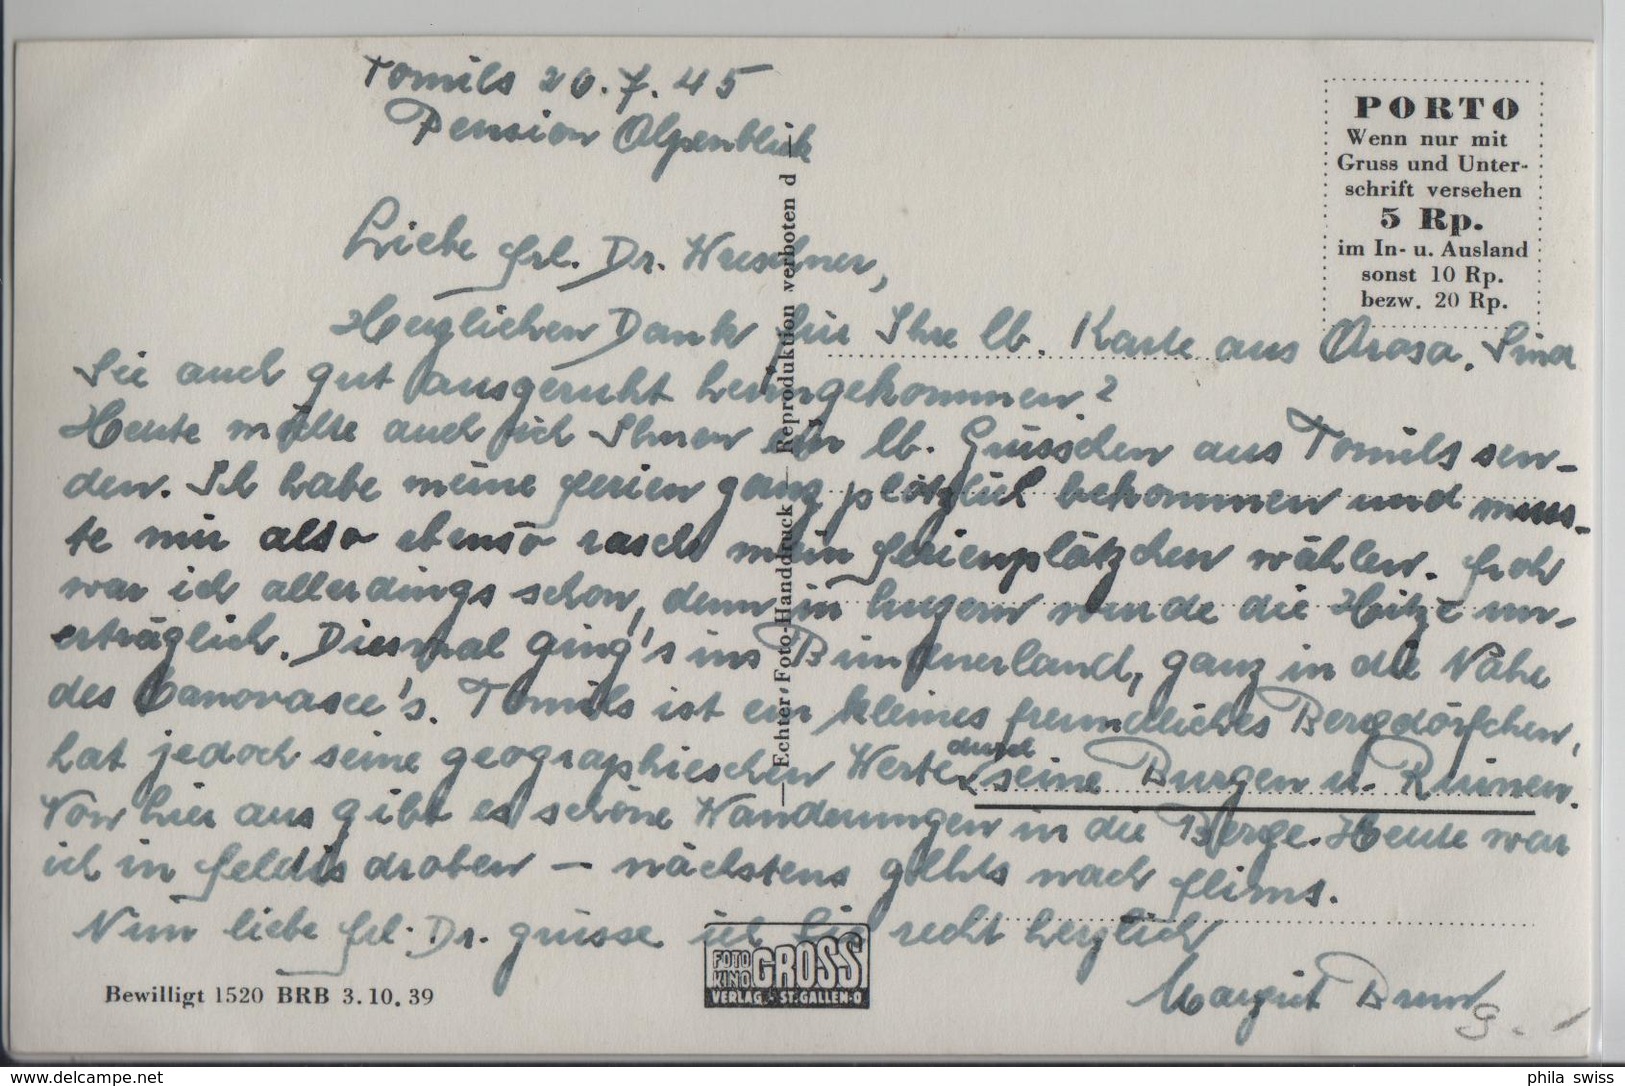 Tomils 20.7.45
Pension Alpenblick
PORTO
Wenn nur mit
Gruss und Unter-
schrift versehen
5 Rp.
im In- u. Ausland
sonst 10 Rp.
bezw. 20 Rp.
Liebe Frl. Dr. Wreschner,
Herzlichen Dank für Ihre lb. Karte aus Arosa. Sind
Sie auch gut ausgeruht heimgekommen?
Heute möchte auch ich Ihnen ein lb. Grüsschen aus Tomils sen-
den. Ich habe meine Ferien ganz plötzlich bekommen und muss-
te mir also ebenso rasch mein Ferienplätzchen wählen. Froh
war ich allerdings schon, denn in Luzern wurde die Hitze un-
erträglich. Diesmal ging's ins Bündnerland, ganz in die Nähe
des Canovasee's. Tomils ist ein kleines freundliches Bergdörfchen,
hat jedoch seine geographischen Werte durch seine Burgen u. Ruinen.
Von hier aus gibt es schöne Wanderungen in die Berge. Heute war
ich in Feldis droben – nächstens geht's nach Flims.
Nun liebe Frl. Dr. grüsse ich Sie recht herzlich
Margrit Brun
Echter Foto-Handdruck — Reproduktion verboten d
FOTO KINO GROSS
VERLAG ST. GALLEN-O
Bewilligt 1520 BRB 3.10.39
delcampe.net
phila_swiss